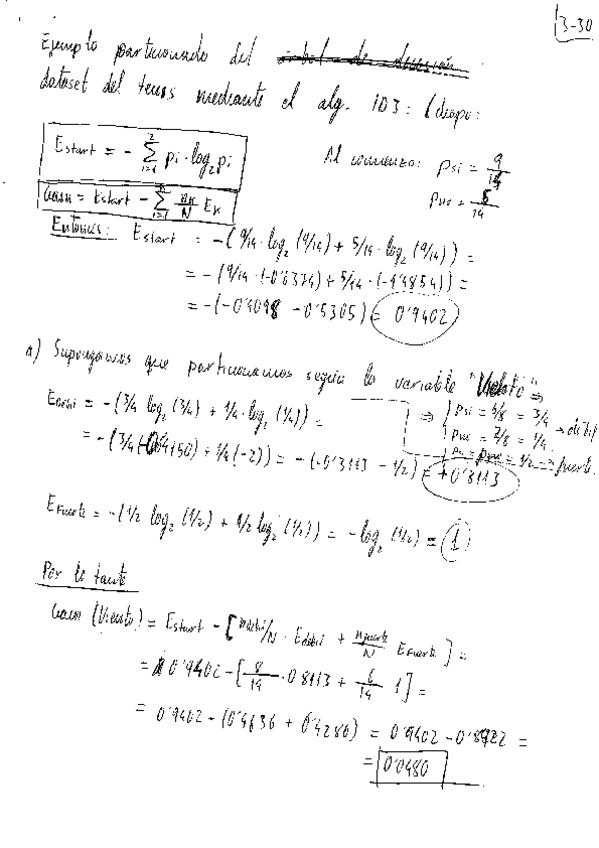 3-30
Ejemplo particionado del árbol de decisión
dataset del tenis mediante el alg. ID3: (diapo:
Estart = - Σ_{i=1}^{2} pi · log₂ pi
Al comienzo: psi = 9/14
pno = 5/14
Gain = Estart - Σ_{i=1} nk/N Ek
Entonces: Estart = -(9/14 · log₂ (9/14) + 5/14 · log₂ (9/14)) =
= -(9/14 · (-0'6374) + 5/14 · (-1'4854)) =
= -(-0'4098 - 0'5305) = 0'9402
a) Supongamos que particionamos según la variable "Viento" ⇒
Edébil = -(3/4 log₂ (3/4) + 1/4 · log₂ (1/4)) =
⇒ psi = 6/8 = 3/4
pno = 2/8 = 1/4 → débil
psi = pno = 1/2 → fuerte.
= -(3/4 (-0'4150) + 1/4 (-2)) = -(-0'3113 - 1/2) = +0'8113
EFuerte = -(1/2 log₂ (1/2) + 1/2 log₂ (1/2)) = -log₂ (1/2) = 1
Por lo tanto
Gain (Viento) = Estart - [ndébil/N · Edébil + nfuerte/N EFuerte] =
= 0'9402 - [8/14 · 0'8113 + 6/14 · 1] =
= 0'9402 - (0'4636 + 0'4286) = 0'9402 - 0'8922 =
= 0'0480